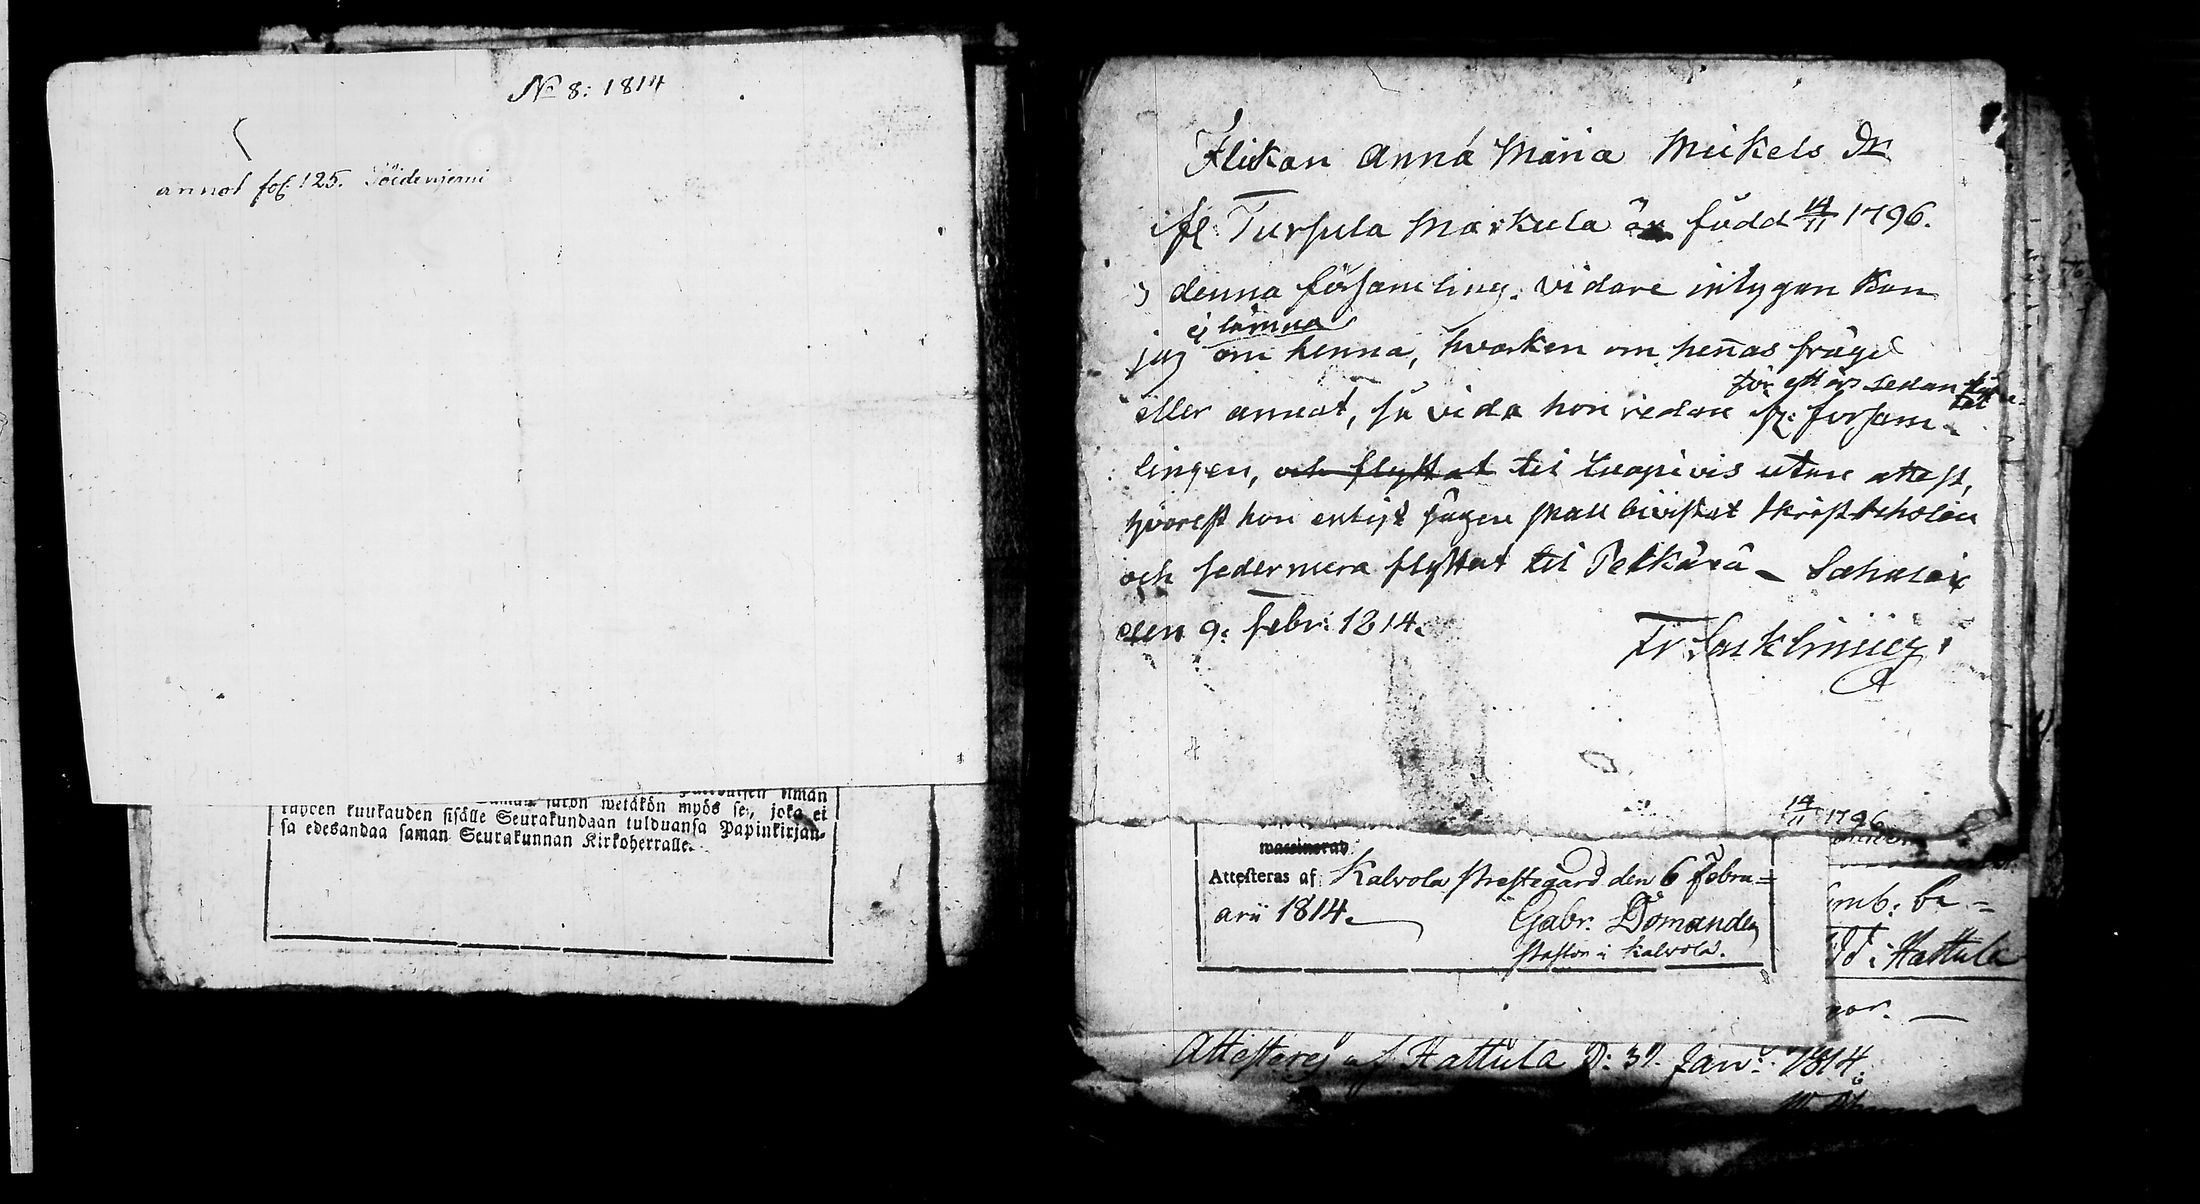 No 8: 1814
annot fol: 125.
kuukauden sisälle Seurakundaan tulduansa Papinkirjan-
sa edesandaa saman Seurakunnan Kirkoherralle.
Flickan Anna Maria Mickels Dr
ifr Tursula Markula är född 14/11 1796.
i denna församling. vidare intygan kan
ej lämna
jag om henna, hvarken om hennas frägd
för ett års sedan
eller annat, så vida hon redan församlingen, och flyttat til utan attest,
hvarest hon enligt sägen skall bivistat skriftskolan
och sedermera flyttat til Pelkänä – Sahalax
den 9: Febr: 1814.
14/11 1796
Attesteras af Kalvola Prestegård den 6 Febru=
arii 1814.
Gabr:
Pastor i Kalvola.
be=
i Hattula
Attesteras af Hattula D: 31. Jan: 1814.